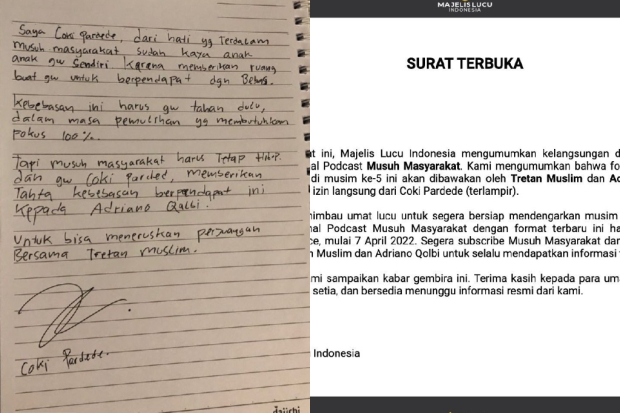 Saya Coki Pardede, dari hati yg Terdalam
Musuh masyarakat sudah kaya anak
anak gw Sendiri karena memberikan ruang
buat gw untuk berpendapat dgn Bebas.
Kebebasan ini harus gw tahan dulu,
dalam masa pemulihan yg membutuhkan
Fokus 100%.
Tapi musuh masyarakat harus Tetap Hidup.
dan gw Coki Parded, memberikan
Tahta kesebasan berpendapat ini
Kepada Adriano Qalbi.
Untuk bisa meneruskan perjuangan
Bersama Tretan Muslim.
Coki Pardede.
MAJELIS LUCU
INDONESIA
SURAT TERBUKA
at ini, Majelis Lucu Indonesia mengumumkan kelangsungan d
al Podcast Musuh Masyarakat. Kami mengumumkan bahwa fo
di musim ke-5 ini akan dibawakan oleh Tretan Muslim dan Ad
izin langsung dari Coki Pardede (terlampir).
imbau umat lucu untuk segera bersiap mendengarkan musim
nal Podcast Musuh Masyarakat dengan format terbaru ini ha
ce, mulai 7 April 2022. Segera subscribe Musuh Masyarakat dan
n Muslim dan Adriano Qolbi untuk selalu mendapatkan informasi
mi sampaikan kabar gembira ini. Terima kasih kepada para uma
setia, dan bersedia menunggu informasi resmi dari kami.
Indonesia